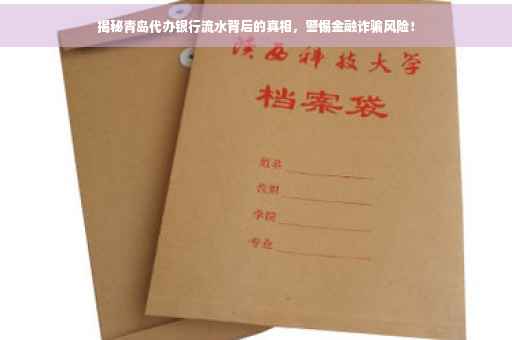 揭秘青岛代办银行流水背后的真相，警惕金融诈骗风险！
陕西科技大学
档案袋
姓名
学院
专业